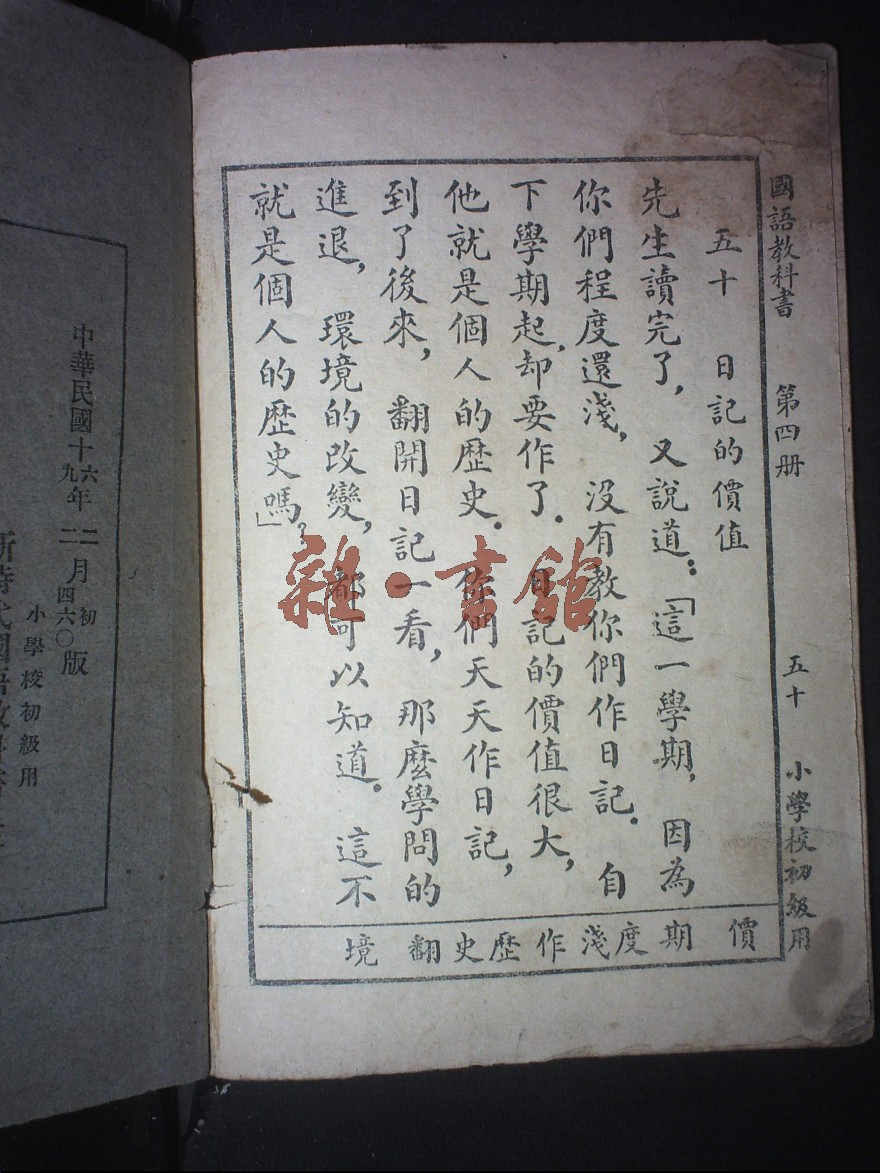 國語教科書 第四册 五十 小學校初級用
五十 日記的價值
先生讀完了，又說道：「這一學期，因為
你們程度還淺，沒有教你們作日記．自
下學期起，却要作了．日記的價值很大，
他就是個人的歷史．你們天天作日記，
到了後來，翻開日記一看，那麼學問的
進退，環境的改變，都可以知道．這不
就是個人的歷史嗎？」
價 期 度 淺 作 歷 史 翻 境
雜·書館
中華民國十六年二月初版
九年二月四六〇版
小學校初級用